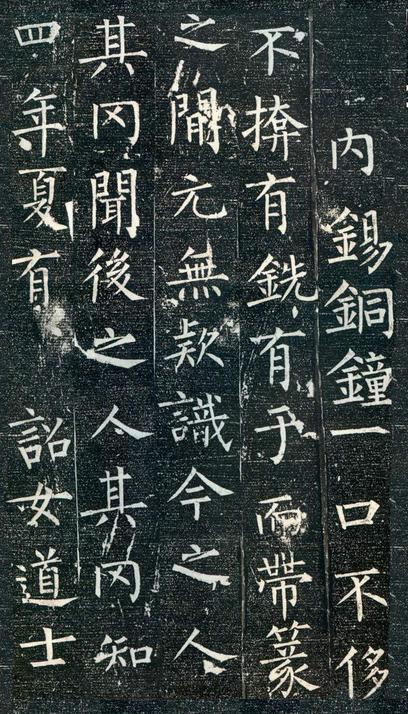 内錫銅鐘一口不侈
不揜有銑有于而帶篆
之間元無款識今之人
其罔聞後之人其罔知
四年夏有詔女道士